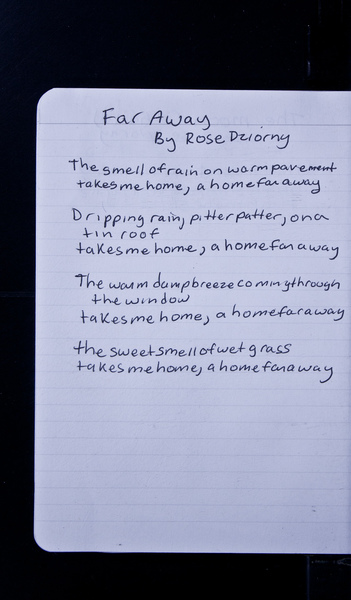 Far Away
By Rose Dziorny
The smell of rain on warm pavement
takes me home, a home far away
Dripping rain, pitter patter, on a
tin roof
takes me home, a home far away
The warm damp breeze coming through
the window
takes me home, a home far away
the sweet smell of wet grass
takes me home, a home far away